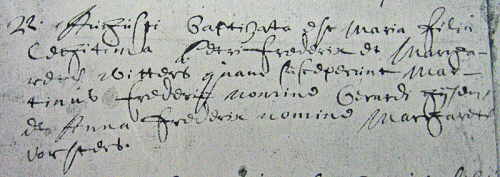 22 Augusti Baptizata est Maria filia
Legitima Petri frederix et Marga-
retæ Witters quam susceperunt Mar-
tinus frederix nomine Gerardi
et Anna frederix nomine Margaretæ
vorsters.